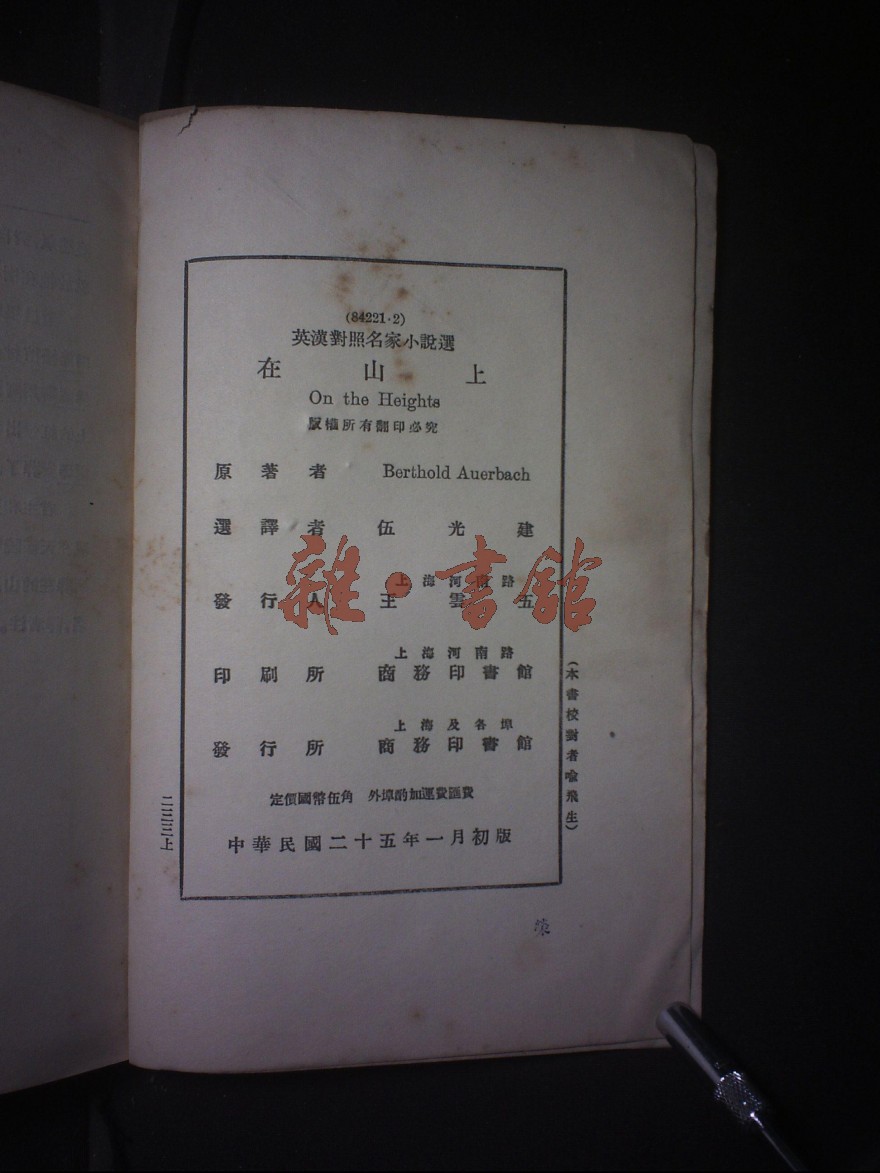 (84221·2)
英漢對照名家小說選
在山上
On the Heights
版權所有翻印必究
原著者 Berthold Auerbach
選譯者 伍光建
上海河南路
發行人 王雲五
上海河南路
印刷所 商務印書館
上海及各埠
發行所 商務印書館
定價國幣伍角 外埠酌加運費匯費
中華民國二十五年一月初版
(本書校對者喻飛生)
二三三上
雜·書館